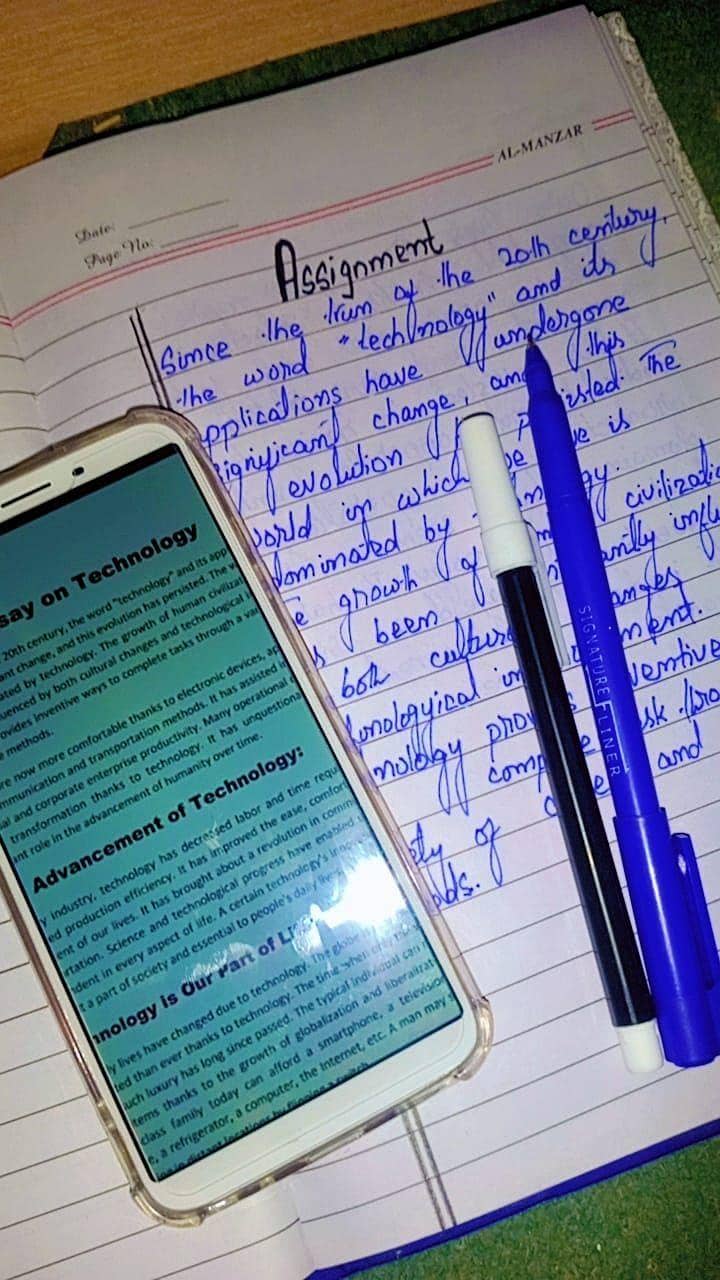 AL-MANZAR
Date:
Page No:
Assignment
Since the trun of the 20th century,
the word "technology" and its
applications have undergone
significant change, and this
evolution The
world in which we is
dominated by
growth of civilizatio
been
both cultur changes
ment.
inventive
provi
comp task
of and
SIGNATURE FLINER
say on Technology
20th century, the word "technology" and its app
ant change, and this evolution has persisted. The w
ated by technology. The growth of human civilizat
uenced by both cultural changes and technological i
ovides inventive ways to complete tasks through a va
methods.
re now more comfortable thanks to electronic devices, ap
mmunication and transportation methods. It has assisted i
al and corporate enterprise productivity. Many operational
transformation thanks to technology. It has unquestiona
ant role in the advancement of humanity over time.
Advancement of Technology:
y industry, technology has decreased labor and time requi
ed production efficiency. It has improved the ease, comfor
ent of our lives. It has brought about a revolution in comm
rtation. Science and technological progress have enabled
ident in every aspect of life. A certain technology's
a part of society and essential to people's daily lives
nology is Our Part of Life
y lives have changed due to technology. The globe
ted than ever thanks to technology. The time when only the
uch luxury has long since passed. The typical individual can
tems thanks to the growth of globalization and liberalizat
class family today can afford a smartphone, a television
e, a refrigerator, a computer, the Internet, etc. A man may
in distant locations by